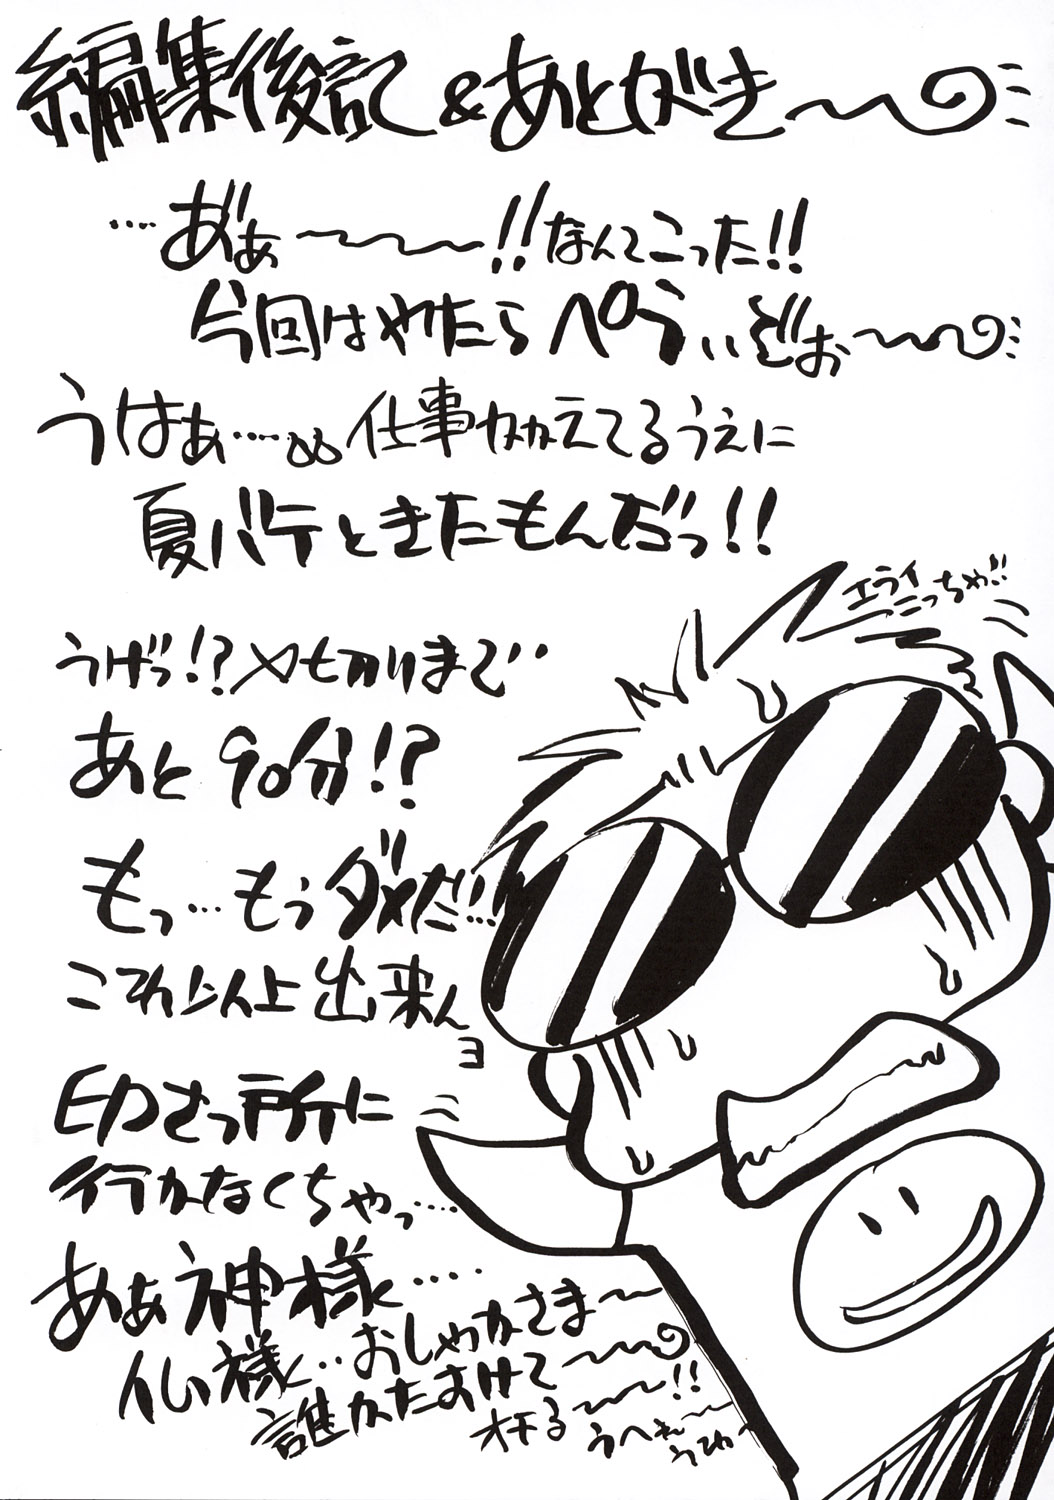 編集後記&あとがき〜
‥‥あ゛ぁ〜〜!!なんてこった!!
今回はやたらペラいぞぉ〜〜
うはぁ‥‥。。仕事かかえてるうえに
夏バテときたもんだっ!!
エライこっちゃ!!
うげっ!?〆切りまで‥
あと90分!?
もっ…もうダメだ…
これ以上出来んヨ
印さっ所に
行かなくちゃっ‥‥
あぁ神様‥‥
仏様‥おしゃかさま〜
誰かたすけて〜〜
オチる〜〜!!
うへぇ〜